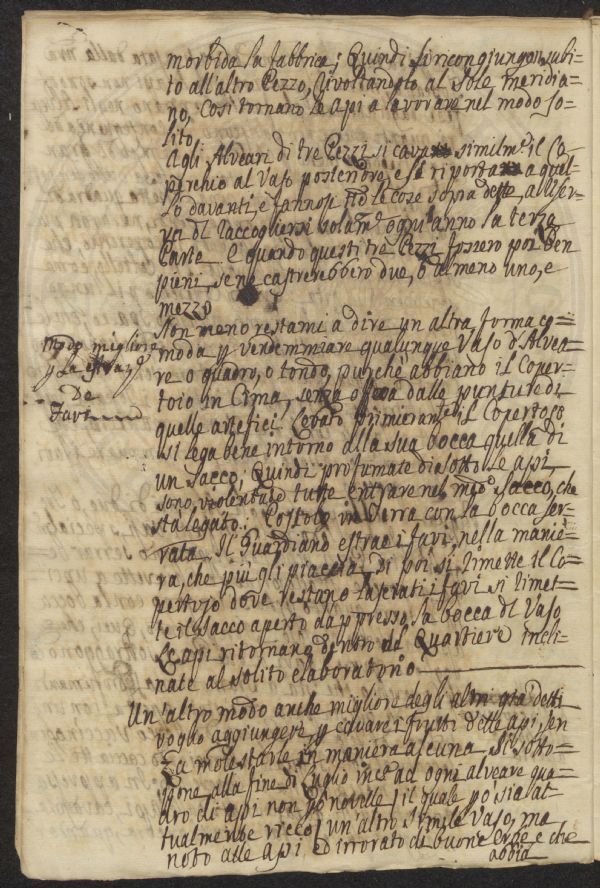 morbida la fabbrica; Quindi si ricongiungon subi=
to all'altro Pezzo, rivoltandolo al Sole meridia=
no, così tornano le api a lavorare nel modo so=
lito.
Agli Alveari di tre Pezzi si cava similme il Co=
perchio al Vaso posteriore, e si riporta a quel=
lo davanti, e fannosi tte le cose sopra dette, a riser=
va dl raccogliersi solamte ogni anno la terza
Parte. E quando questi tre Pezzi fossero poi ben
pieni, se ne castrerebbero due, ò almeno uno, e
mezzo
Non meno restami a dire un altra forma co=
moda p Vendemmiare qualunque Vaso d'Alvea=
re o quadro, o tondo, purchè abbiano il Coper=
toio in Cima, senza offesa dalle punture di
quelle artefici. Levato primieramte il Copertojo
si lega bene intorno alla sua bocca quella di
un Sacco; Quindi profumate di sotto le api
sono violentate tutte entrare nel mgo Sacco, che
sta legato. Postolo in Terra con la bocca ser=
rata Il Guardiano estrae i favi, nella manie=
ra, che più gli piaccia; Di poi si rimette il Co=
pertojo dove restano lasciati i favi si rimet=
te il Sacco aperto dappresso la bocca dl Vaso
Le api ritornano dentro al Quartiere incli=
nate al solito elaboratorio
Modo migliore
p la estraze
De
Favi
Un'altro modo anche migliore degli altri già detti
voglio aggiungere, p cavare i frutti dette api, sen
za molestarle in maniera alcuna. Si sotto=
pone alla fine di Luglio ince ad ogni alveare qua=
dro di api non po novelle, il quale po sia at=
tualmente ricco, un'altro simile Vaso, ma
noto alle api ed irrorato di buone Erbe e che
abbia